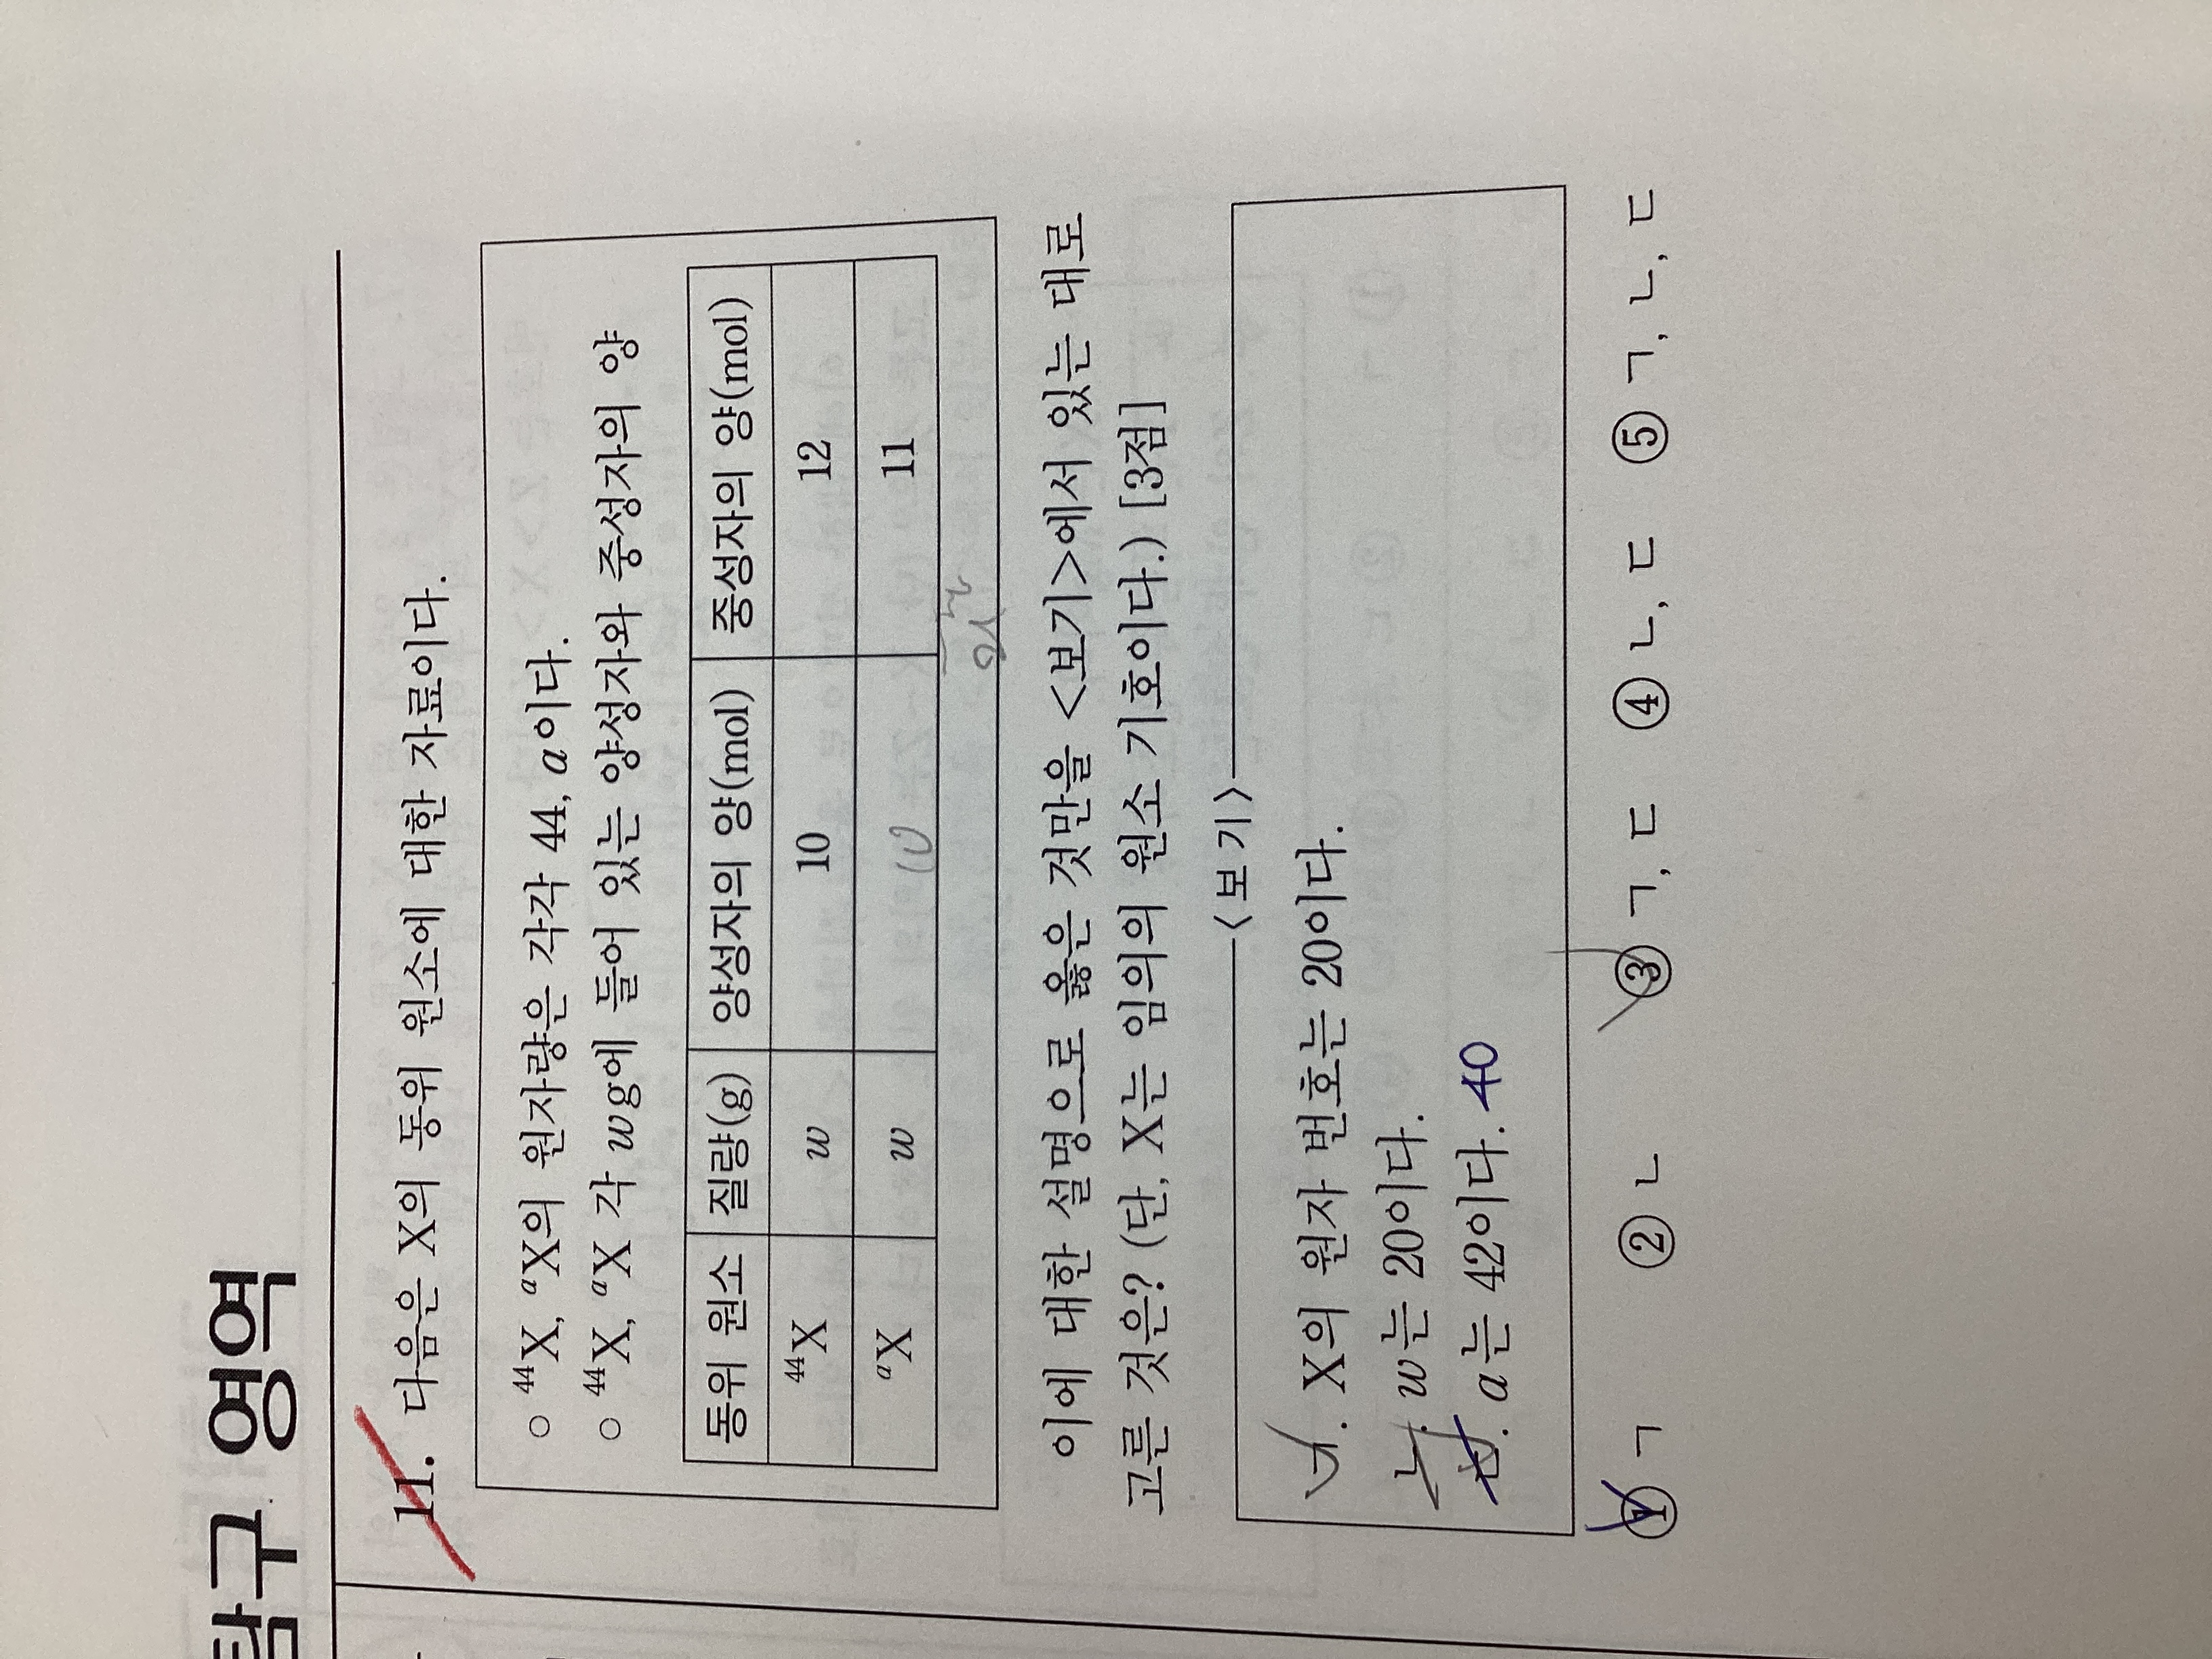 탐구 영역
11. 다음은 X의 동위 원소에 대한 자료이다.
○ ⁴⁴X, ᵃX의 원자량은 각각 44, a이다.
○ ⁴⁴X, ᵃX 각 wg에 들어 있는 양성자와 중성자의 양
동위 원소 질량(g) 양성자의 양(mol) 중성자의 양(mol)
⁴⁴X w 10 12
ᵃX w 11
이에 대한 설명으로 옳은 것만을 <보기>에서 있는 대로
고른 것은? (단, X는 임의의 원소 기호이다.) [3점]
<보 기>
ㄱ. X의 원자 번호는 20이다.
ㄴ. w는 20이다.
ㄷ. a는 42이다. 40
① ㄱ ② ㄴ ③ ㄱ, ㄷ ④ ㄴ, ㄷ ⑤ ㄱ, ㄴ, ㄷ